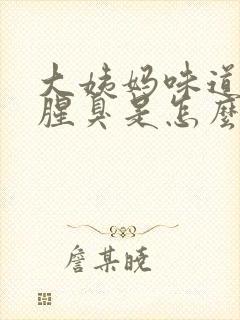 大姨妈味道
腥臭是怎麼
詹某晓